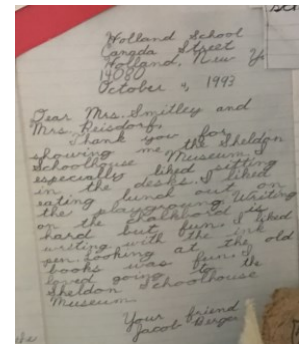 Holland School
Canada Street
Holland, New Yo
14080
October 4, 1993
Dear Mrs. Smitley and
Mrs. Reisdorf,
Thank you for
showing me the Sheldon
Schoolhouse Museum. I
especially liked sitting
in the desks. I liked
eating lunch out on
the playground. Writing
on the chalkboard is
hard but fun. I liked
writing with the ink
pen. Looking at the old
books was fun. I
loved going to the
Sheldon Schoolhouse
Museum.
Your friend
Jacob Berger